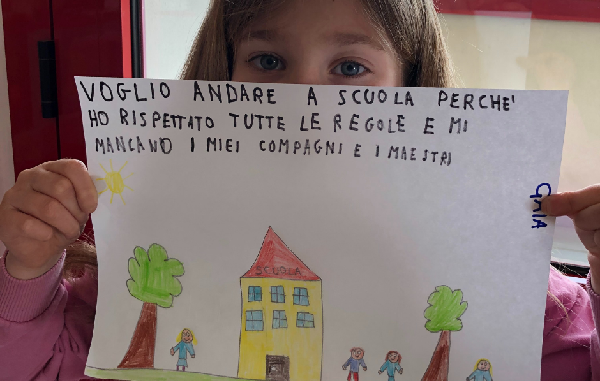 VOGLIO ANDARE A SCUOLA PERCHE'
HO RISPETTATO TUTTE LE REGOLE E MI
MANCANO I MIEI COMPAGNI E I MAESTRI
GAIA
SCUOLA